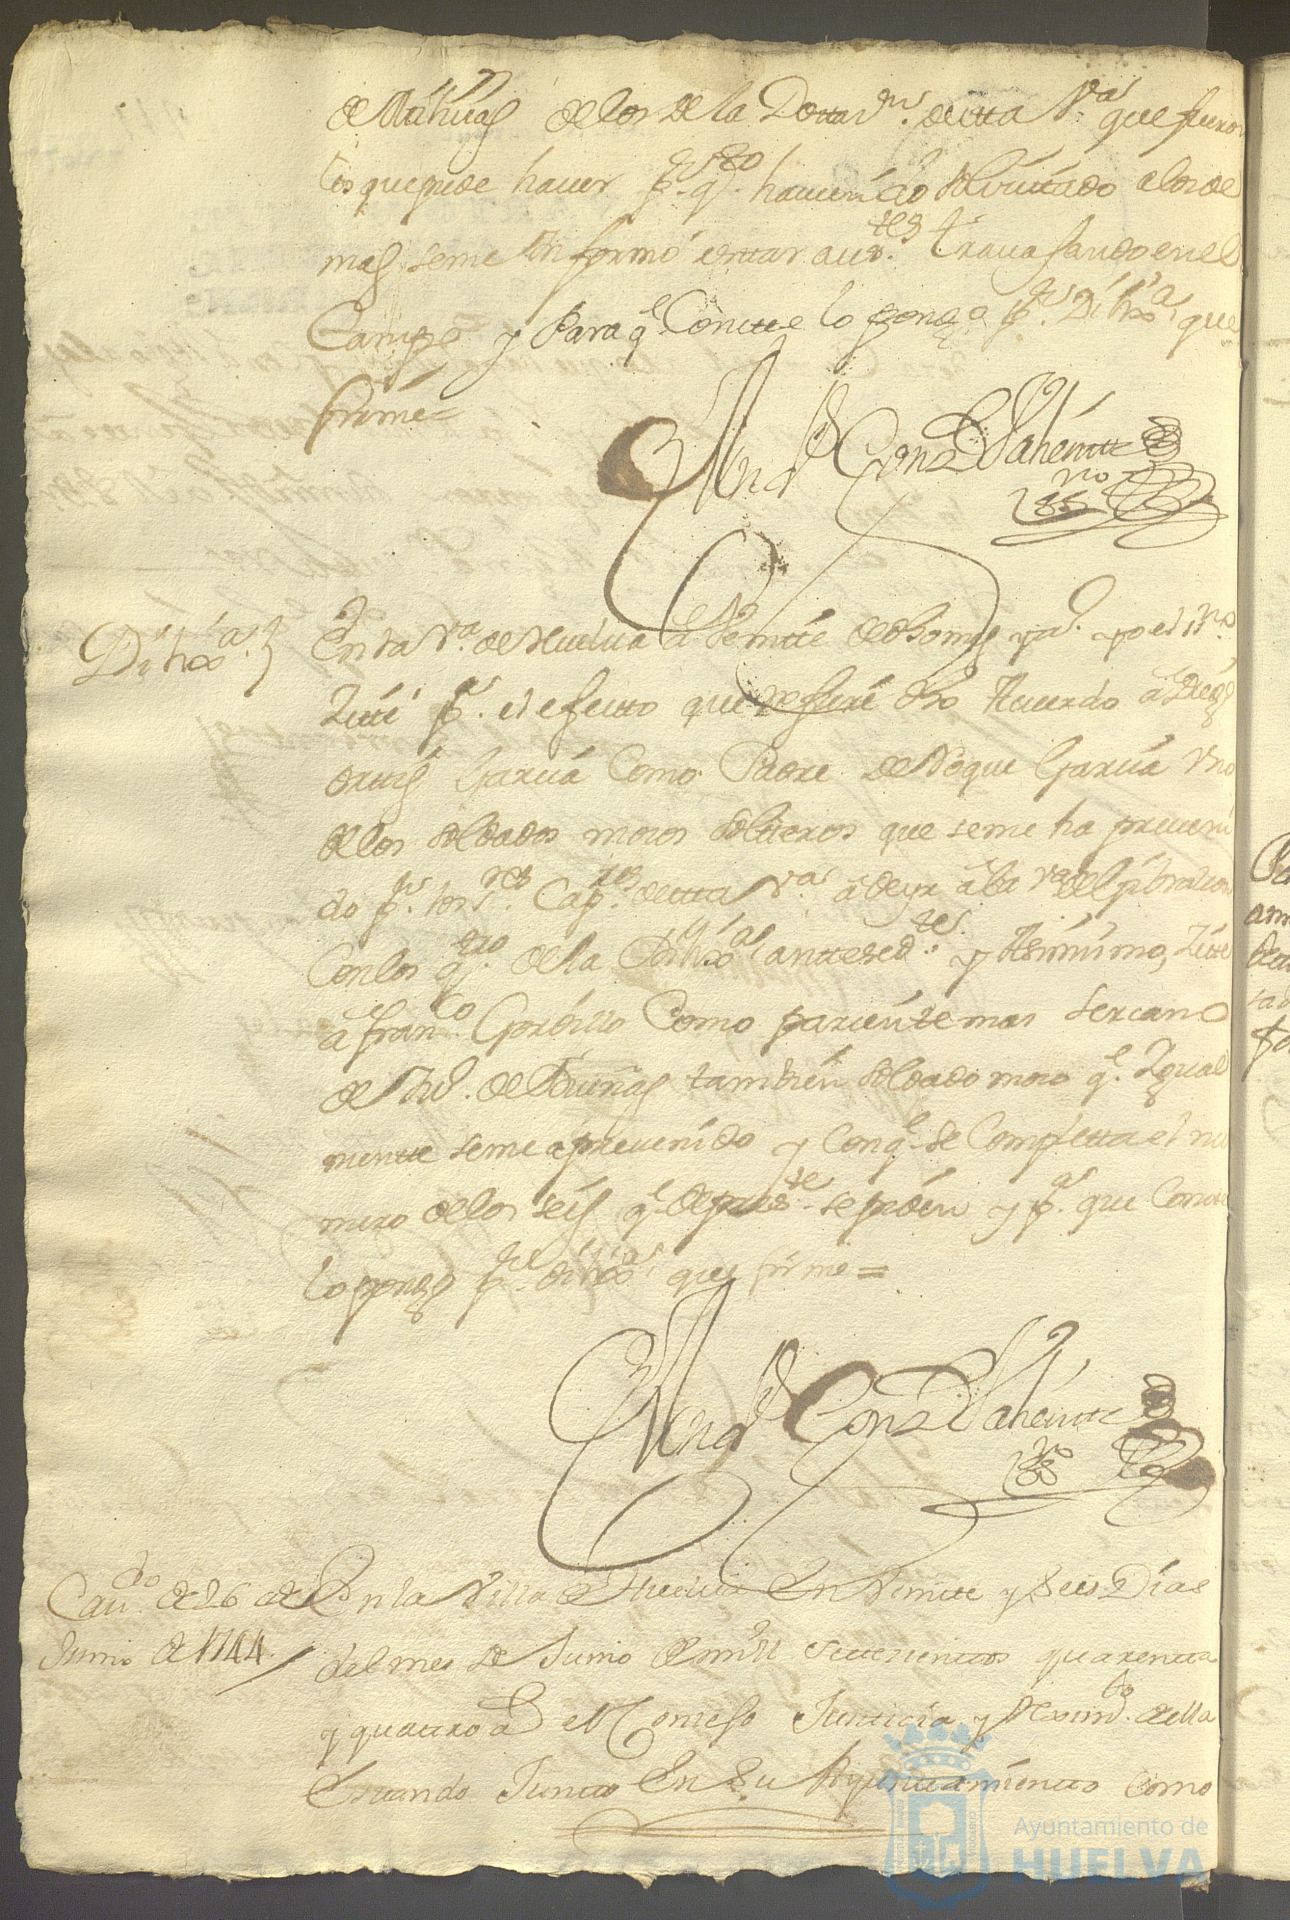 de Milicias de los de la Dotaz.n de esta V.a que fueron
los que pude haver p.r q.to haviendo solicitado a los de
mas se me informó estar aus.tes travajando en el
Campo y para q.e Conste lo pongo p.r Dilix.a que
firmé=
And.s Gonz Vahentte
ss.no
Dilix.a
En la V.a de Huelva dho mes y a.o yo el ss.no
Zité p.a el efecto que refiere dho Acuerdo a Diego
Ortiz Garcia Como Padre de Roque Garcia Uno
de los soldados mozos solteros que se me ha preveni
do p.r los S.res Cap.res de esta V.a
Con los q.tro de la Dilix.a anteced.te y Asimismo, Zité
a fran.co Gordillo Como pariente mas sercano
de también soldado mozo q.e Igual
mente se me a prevenido y Con q.e se Completta el nu
mero de los seis q.e de pres.te se piden y p.a que Conste
lo pongo p.r dilix.a que firmé=
And.s Gonz Vahentte
ss.no
Cav.do de 26 de
Junio de 1744
En la Villa de Huelva En Veinte y seis Dias
del mes de Junio de mill settecientos quarenta
y quattro a.s el Consejo Justicia y Reximi.to de ella
Estando Juntto En su Ayuntamiento como
Ayuntamiento de
HUELVA